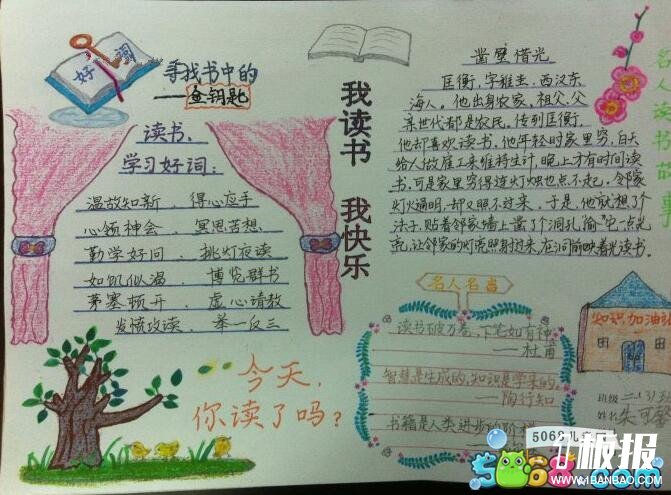 好词
寻找书中的
——金钥匙
读书、
学习好词：
温故知新、得心应手
心领神会、冥思苦想
勤学好问、挑灯夜读
如饥似渴、博览群书
茅塞顿开、虚心请教
发愤攻读、举一反三
我读书 我快乐
凿壁借光
匡衡，字稚圭，西汉东
海人。他出身农家，祖父、父
亲世代都是农民。传到匡衡，
他却喜欢读书，他年轻时家里穷，白天
给人做雇工来维持生计，晚上才有时间读
书。可是家里穷得连灯烛也点不起。邻家
灯火通明，却又照不过来，于是，他就想了个
法子，贴着邻家墙上凿了个洞孔"偷"它一点光
亮，让邻家的灯亮照射过来，在洞前映着光读书。
名人读书的事
名人名言
读书破万卷，下笔如有神
——杜甫
智慧是生成的，知识是学来的。
——陶行知
书籍是人类进步的阶梯
知识加油站
班级
姓名 朱可
今天，
你读了吗？
5068儿
板报
5068.com
WWW.41BANBAO.COM